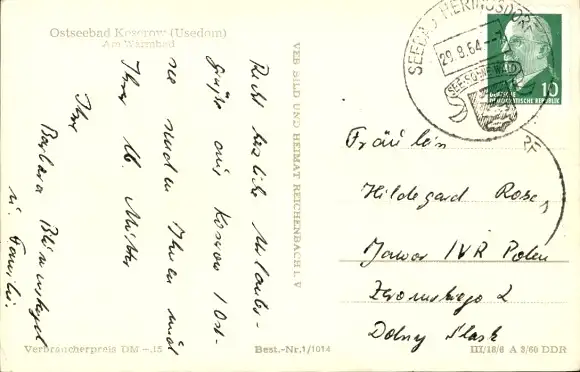 Ostseebad Koserow (Usedom)
Am Warmbad
Recht herzliche Urlaubs-
grüße aus Koserow / Ost-
see senden Ihnen und
Ihrer lb. Mutter
Ihre
Barbara
u. Familie.
VEB BILD UND HEIMAT REICHENBACH I. V
SEEBAD HERINGSDORF
29.8.64
SEE SONNE WALD
10
DEUTSCHE
DEMOKRATISCHE REPUBLIK
Fräulein
Hildegard Rose
Jawor IVR Polen
Żeromskiego 2
Dolny Śląsk
Verbraucherpreis DM –,15
Best.-Nr. 1/1014
III/18/6 A 3/60 DDR